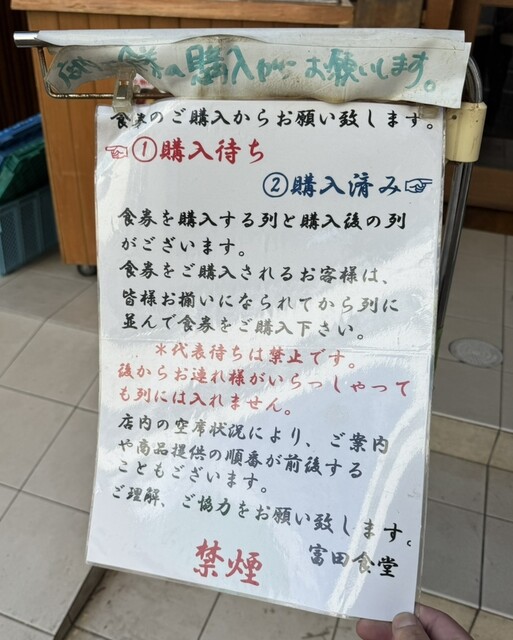 食券の購入からお願いします。
食券のご購入からお願い致します。
☜①購入待ち
②購入済み☞
食券を購入する列と購入後の列
がございます。
食券をご購入されるお客様は、
皆様お揃いになられてから列に
並んで食券をご購入下さい。
＊代表待ちは禁止です。
後からお連れ様がいらっしゃって
も列には入れません。
店内の空席状況により、ご案内
や商品提供の順番が前後する
こともございます。
ご理解、ご協力をお願い致します。
富田食堂
禁煙